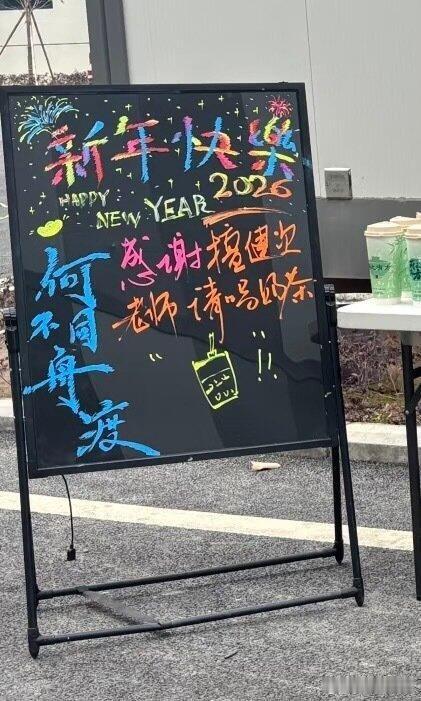 新年快樂
HAPPY
NEW YEAR
2026
何不同舟渡
感谢檀健次
老师请喝奶茶
!!